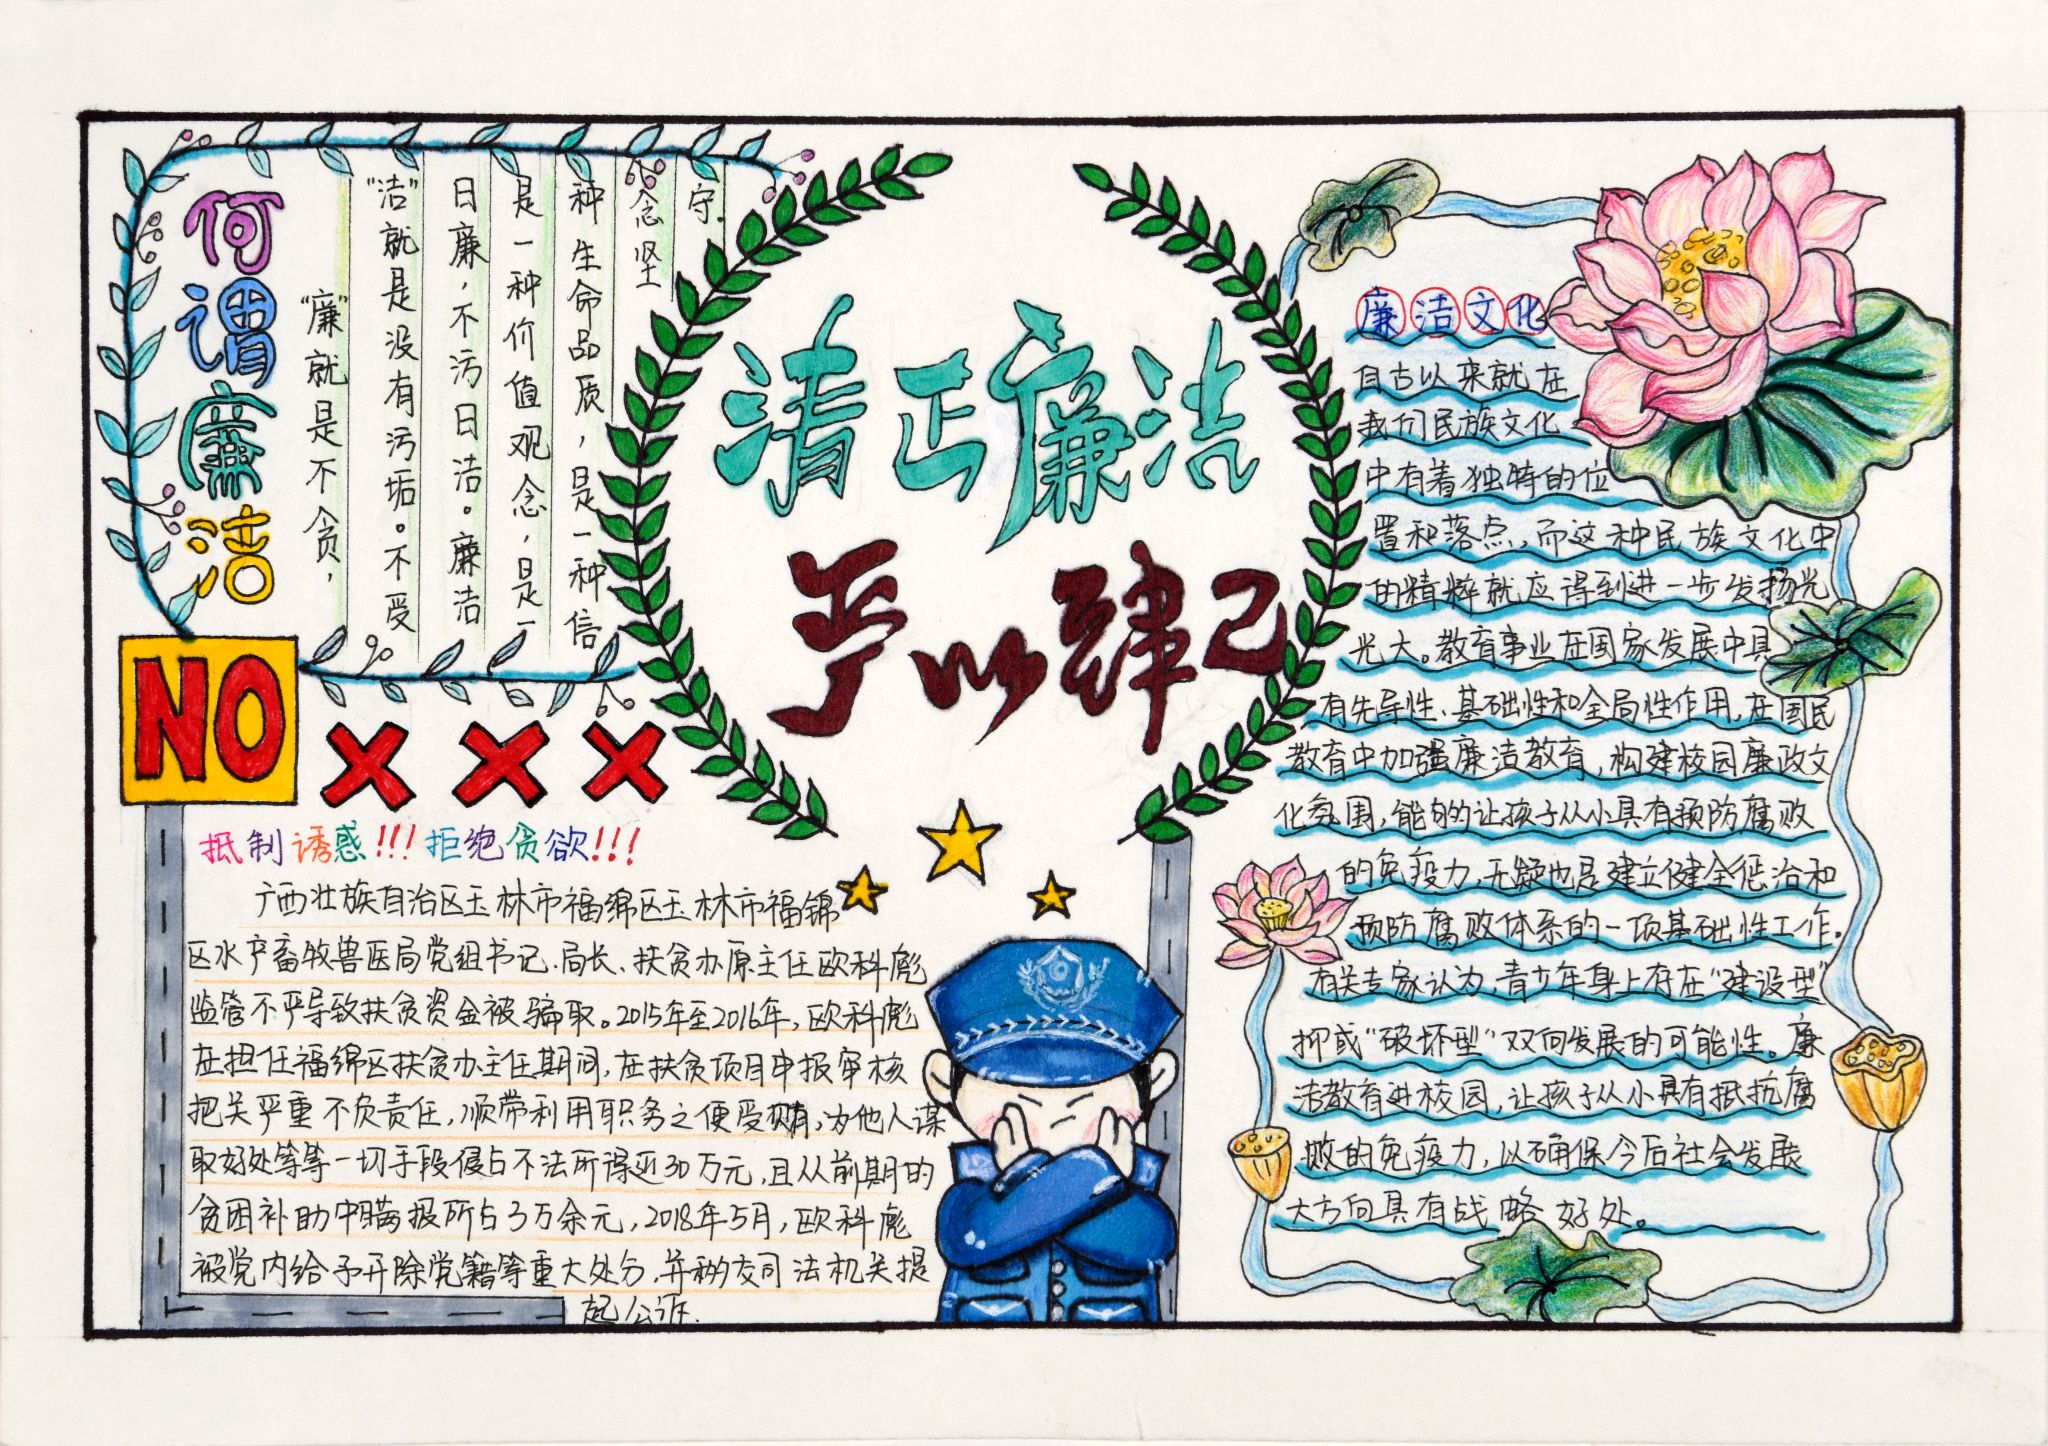 何谓廉洁
"廉"就是不贪，
"洁"就是没有污垢。不受
日廉，不污日洁。廉洁
是一种价值观念，是一
种生命品质，是一种信
念坚
守。
清正廉洁
严以肆己
NO
抵制诱惑!!!拒绝贪欲!!!
广西壮族自治区玉林市福绵区玉林市福锦
区水产畜牧兽医局党组书记、局长、扶贫办原主任欧科彪
监管不严导致扶贫资金被骗取。2015年至2016年，欧科彪
在担任福绵区扶贫办主任期间，在扶贫项目申报审核
把关严重不负责任，顺带利用职务之便受贿，为他人谋
取好处等等一切手段侵占不法所得近30万元，且从前期的
贫困补助中瞒报所占3万余元，2018年5月，欧科彪
被党内给予开除党籍等重大处分，并移交司法机关提
起公诉.
廉洁文化
自古以来就在
我们民族文化
中有着独特的位
置和落点，而这种民族文化中
的精粹就应得到进一步发扬光
光大。教育事业在国家发展中具
有先导性、基础性和全局性作用，在国民
教育中加强廉洁教育，构建校园廉政文
化氛围，能够的让孩子从小具有预防腐败
的免疫力，无疑也是建立健全惩治和
预防腐败体系的一项基础性工作。
有关专家认为，青少年身上存在"建设型"
抑或"破坏型"双向发展的可能性。廉
洁教育进校园，让孩子从小具有抵抗腐
败的免疫力，以确保今后社会发展
大方向具有战略好处。